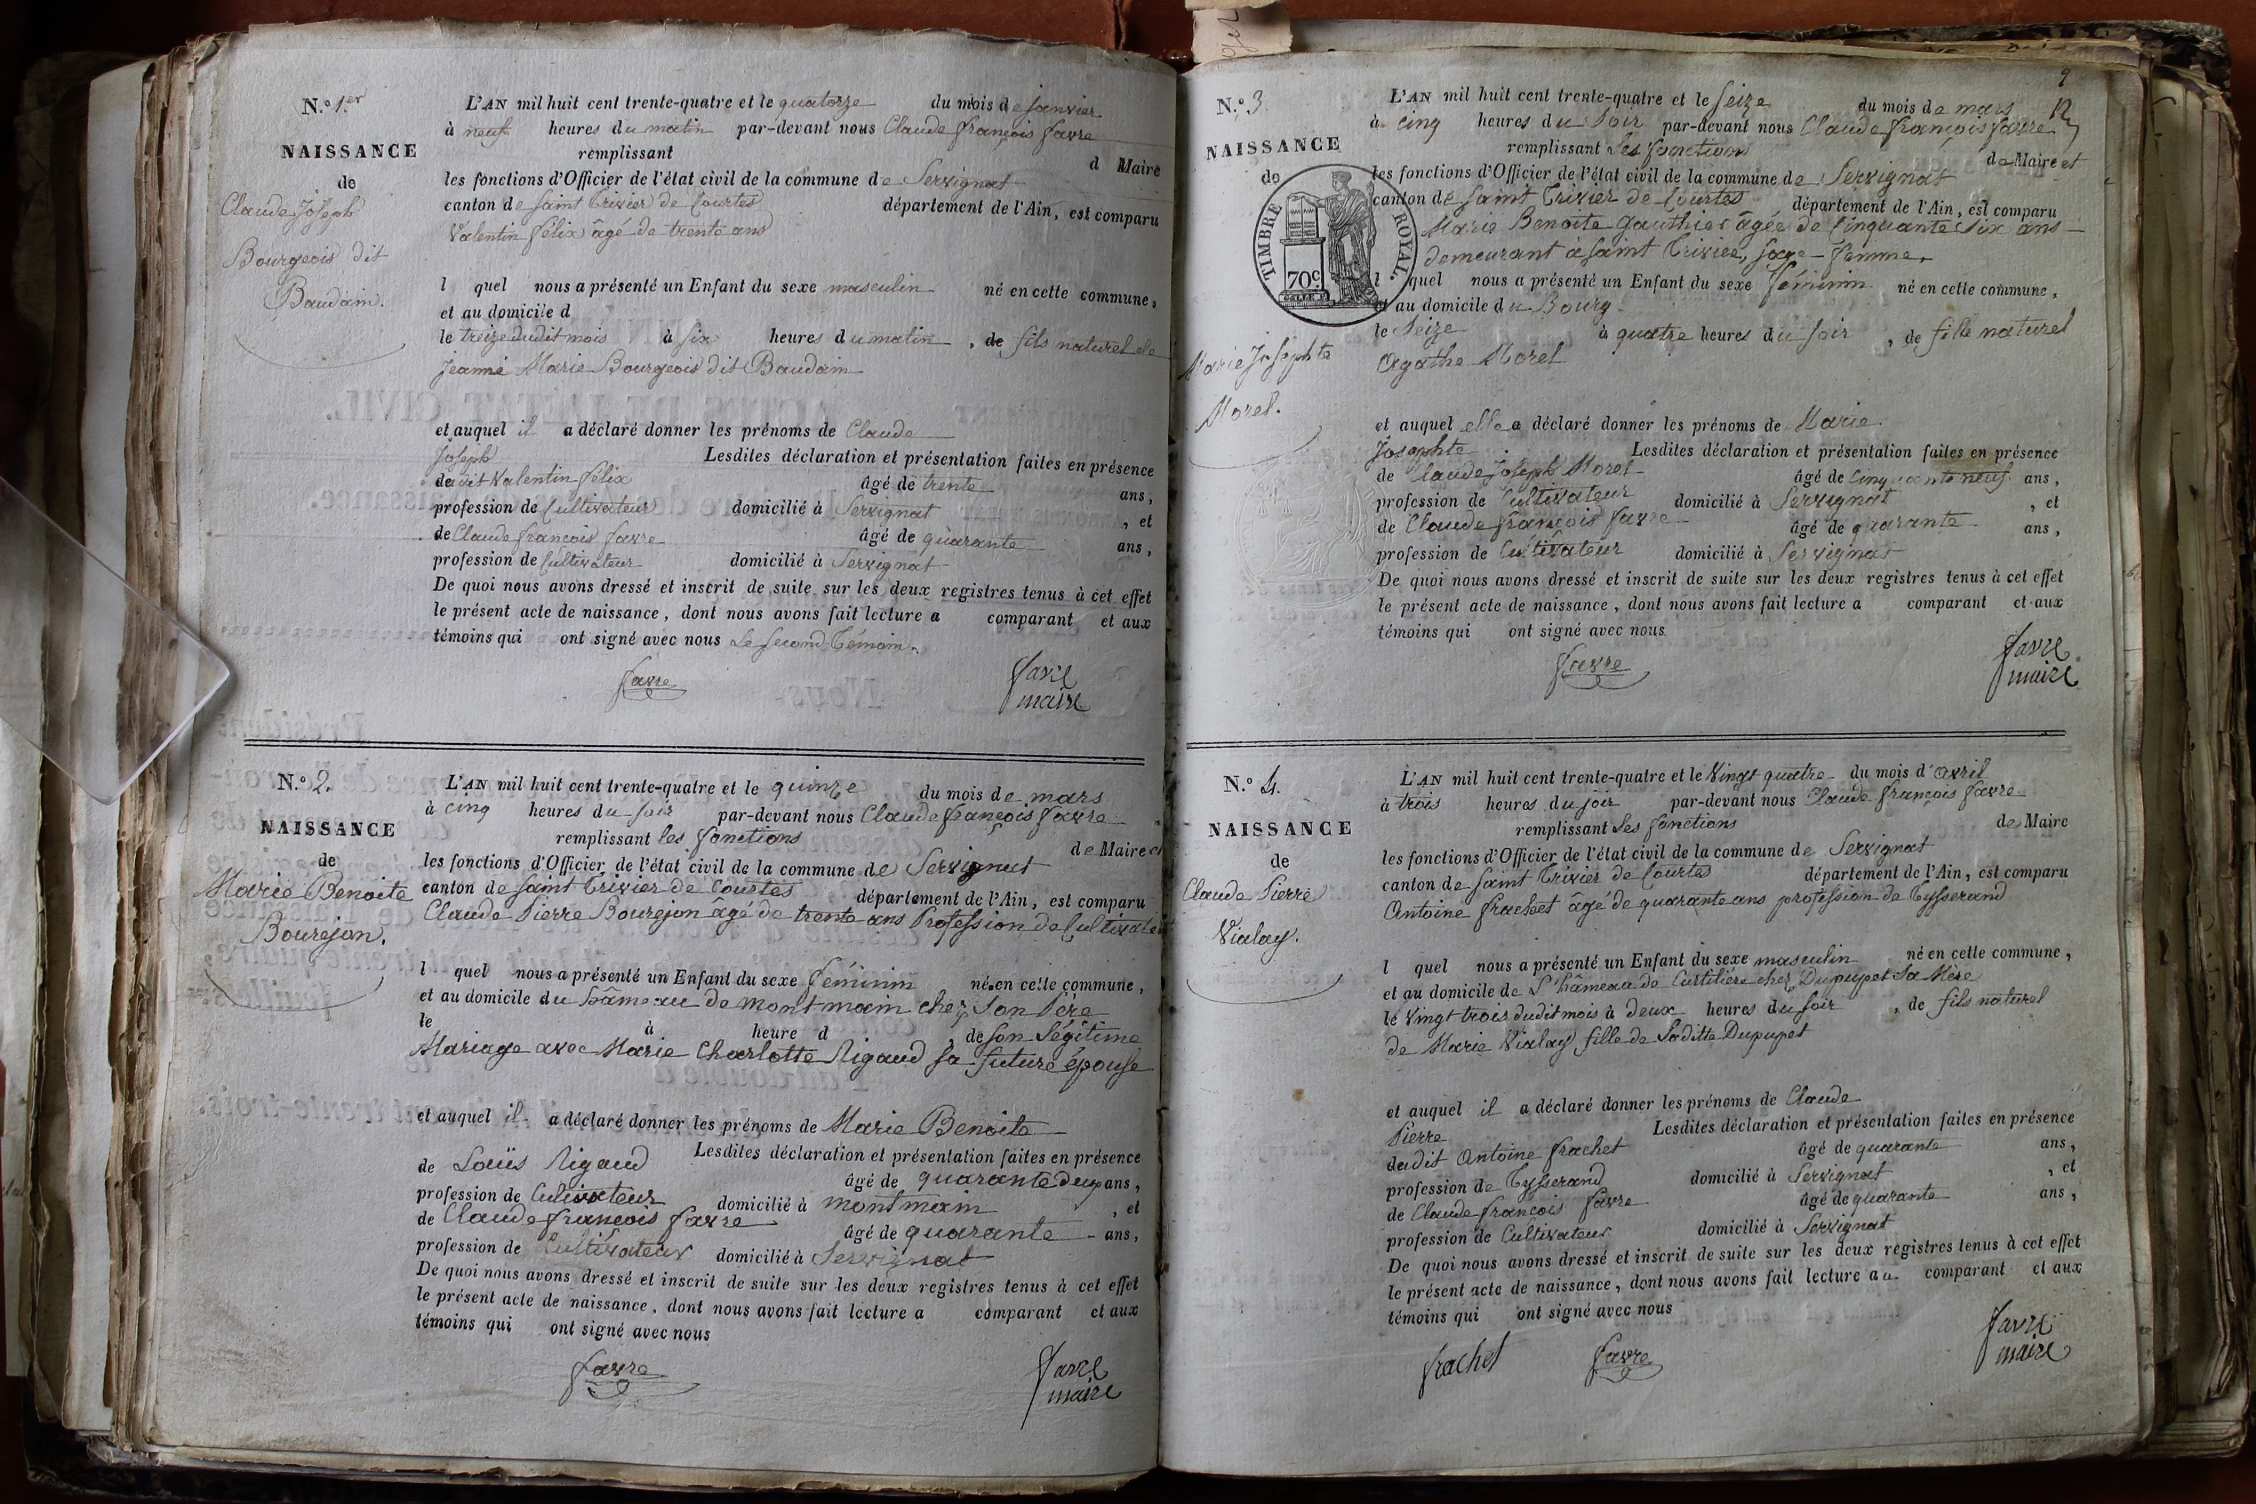 N.º 1.er
NAISSANCE
de
Claude Joseph
Bourgeois dit
Baudain.
L'AN mil huit cent trente-quatre et le quatorze du mois de janvier
à neuf heures du matin par-devant nous Claude françois favre
remplissant d Maire
les fonctions d'Officier de l'état civil de la commune de Servignat
canton de Saint Trivier de Courtes département de l'Ain, est comparu
Valentin félix âgé de trente ans
l quel nous a présenté un Enfant du sexe masculin né en cette commune,
et au domicile d
le treize dudit mois à six heures du matin , de fils naturel de
Jeanne Marie Bourgeois dit Baudain
et auquel il a déclaré donner les prénoms de Claude
Joseph Lesdites déclaration et présentation faites en présence
dudit Valentin félix âgé de trente ans,
profession de Cultivateur domicilié à Servignat , et
de Claude françois favre âgé de quarante ans,
profession de Cultivateur domicilié à Servignat
De quoi nous avons dressé et inscrit de suite sur les deux registres tenus à cet effet
le présent acte de naissance, dont nous avons fait lecture a comparant et aux
témoins qui ont signé avec nous Le Second Témoin.
favre
favre
maire
N.º 2.
NAISSANCE
de
Marie Benoite
Bourejon.
L'AN mil huit cent trente-quatre et le quinze du mois de mars
à cinq heures du soir par-devant nous Claude françois favre
remplissant les fonctions de Maire et
les fonctions d'Officier de l'état civil de la commune de Servignat
canton de Saint Trivier de Courtes département de l'Ain, est comparu
Claude Pierre Bourejon âgé de trente ans Profession de Cultivateur
l quel nous a présenté un Enfant du sexe féminin né en cette commune,
et au domicile du hâmeau de montmain chez Son Père
le à heure d , de son Légitime
Mariage avec Marie Charlotte Rigaud sa future épouse
et auquel il a déclaré donner les prénoms de Marie Benoite
Lesdites déclaration et présentation faites en présence
de Loüis Rigaud âgé de quarante deux ans,
profession de Cultivateur domicilié à montmain , et
de Claude françois favre âgé de quarante ans,
profession de Cultivateur domicilié à Servignat
De quoi nous avons dressé et inscrit de suite sur les deux registres tenus à cet effet
le présent acte de naissance, dont nous avons fait lecture a comparant et aux
témoins qui ont signé avec nous
favre
favre
maire
9
N.º 3
NAISSANCE
de
TIMBRE ROYAL.
70c.
Marie Josephte
Morel.
L'AN mil huit cent trente-quatre et le Seize du mois de mars
à cinq heures du Soir par-devant nous Claude françois favre
remplissant Les fonctions de Maire et
les fonctions d'Officier de l'état civil de la commune de Servignat
canton de Saint Trivier de Courtes département de l'Ain, est comparu
Marie Benoite Gauthier âgée de Cinquante Six ans
demeurant à Saint Trivier, Sage-femme.
l quel nous a présenté un Enfant du sexe féminin né en cette commune,
et au domicile du Bourg
le Seize à quatre heures du Soir , de fille naturel
Agathe Morel
et auquel elle a déclaré donner les prénoms de Marie
Josephte Lesdites déclaration et présentation faites en présence
de Claude Joseph Morel âgé de Cinquante neuf ans,
profession de Cultivateur domicilié à Servignat , et
de Claude françois favre âgé de quarante ans,
profession de Cultivateur domicilié à Servignat
De quoi nous avons dressé et inscrit de suite sur les deux registres tenus à cet effet
le présent acte de naissance, dont nous avons fait lecture a comparant et aux
témoins qui ont signé avec nous
favre
favre
maire
N.º 4.
NAISSANCE
de
Claude Pierre
Vialay.
L'AN mil huit cent trente-quatre et le Vingt quatre du mois d'avril
à trois heures du soir par-devant nous Claude françois favre
remplissant Les fonctions de Maire
les fonctions d'Officier de l'état civil de la commune de Servignat
canton de Saint Trivier de Courtes département de l'Ain, est comparu
Antoine frachet âgé de quarante ans profession de Tysserand
l quel nous a présenté un Enfant du sexe masculin né en cette commune,
et au domicile de L'hâmeau de Curtilière chez Dupupet Sa Mère
le Vingt trois dudit mois à deux heures du soir , de fils naturel
de Marie Vialay fille de Laditte Dupupet
et auquel il a déclaré donner les prénoms de Claude
Pierre Lesdites déclaration et présentation faites en présence
dudit Antoine frachet âgé de quarante ans,
profession de Tysserand domicilié à Servignat , et
de Claude françois favre âgé de quarante ans,
profession de Cultivateur domicilié à Servignat
De quoi nous avons dressé et inscrit de suite sur les deux registres tenus à cet effet
le présent acte de naissance, dont nous avons fait lecture au comparant et aux
témoins qui ont signé avec nous
frachet
favre
favre
maire